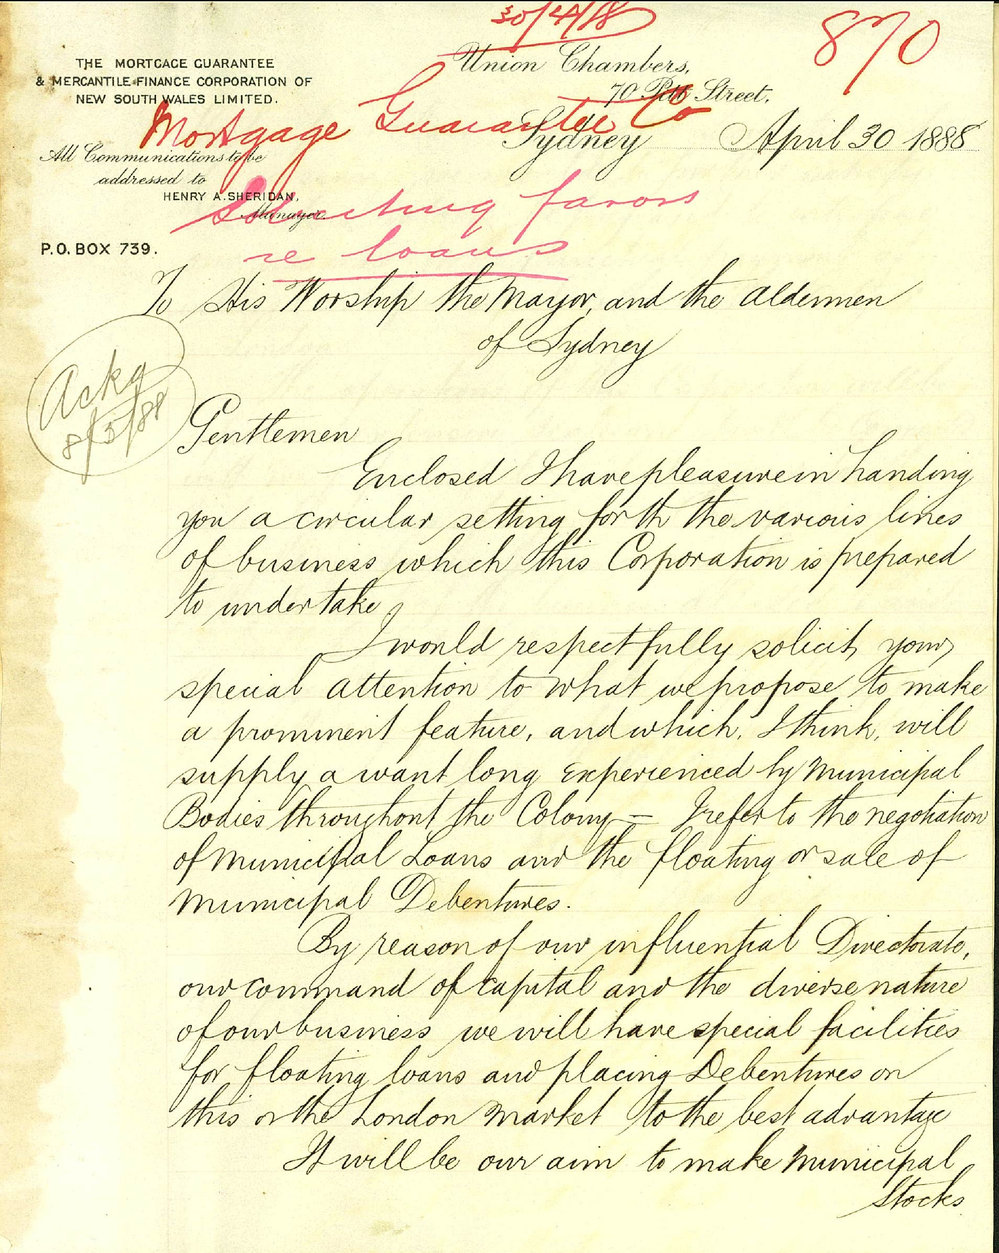 30/4/88
870
THE MORTGAGE GUARANTEE
& MERCANTILE FINANCE CORPORATION OF
NEW SOUTH WALES LIMITED.
Union Chambers,
70 Pitt Street,
Mortgage Guarantee Co
Sydney April 30 1888
All Communications to be
addressed to
HENRY A. SHERIDAN,
Manager.
Soliciting favors
re loans
P.O. BOX 739.
To His Worship the Mayor, and the Aldermen
of Sydney
Ackd
8/5/88
Gentlemen
Enclosed I have pleasure in handing
you a circular setting forth the various lines
of business which this Corporation is prepared
to undertake
I would respectfully solicit your
special attention to what we propose to make
a prominent feature, and which, I think, will
supply a want long experienced by Municipal
Bodies throughout the Colony — I refer to the negotiation
of Municipal Loans and the floating or sale of
Municipal Debentures.
By reason of our influential Directorate,
our command of capital and the diverse nature
of our business we will have special facilities
for floating loans and placing Debentures on
this or the London Market to the best advantage
It will be our aim to make Municipal
Stocks